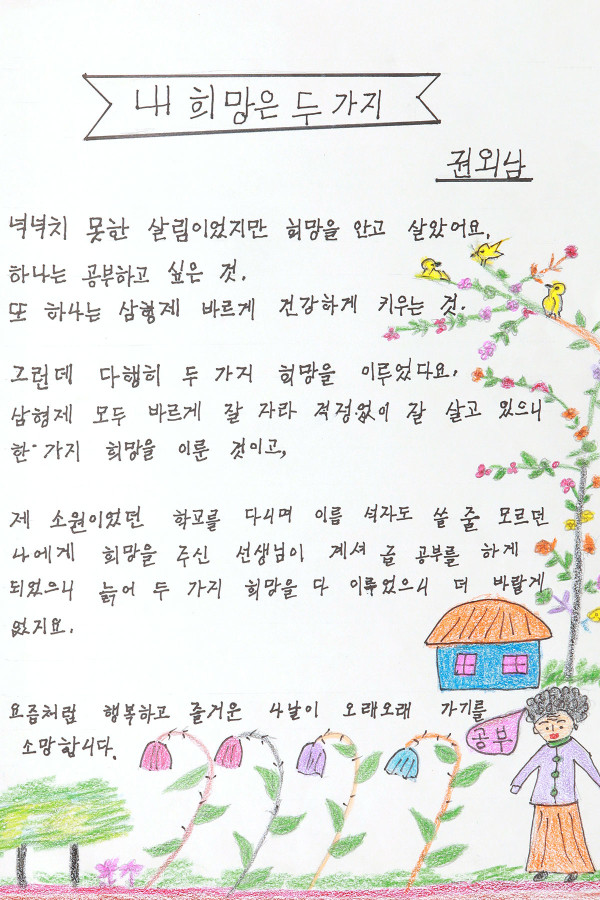 내 희망은 두 가지
권외남
넉넉치 못한 살림이었지만 희망을 안고 살았어요.
하나는 공부하고 싶은 것.
또 하나는 삼형제 바르게 건강하게 키우는 것.
그런데 다행히 두 가지 희망을 이루었다요.
삼형제 모두 바르게 잘 자라 적정없이 잘 살고 있으니
한 가지 희망을 이룬 것이고,
제 소원이었던 학교를 다니며 이름 석자도 쓸 줄 모르던
나에게 희망을 주신 선생님이 계셔 꿈 공부를 하게
되었으니 늙어 두 가지 희망을 다 이루었으니 더 바랄게
없지요.
요즘처럼 행복하고 즐거운 나날이 오래오래 가기를
소망합니다.
공부